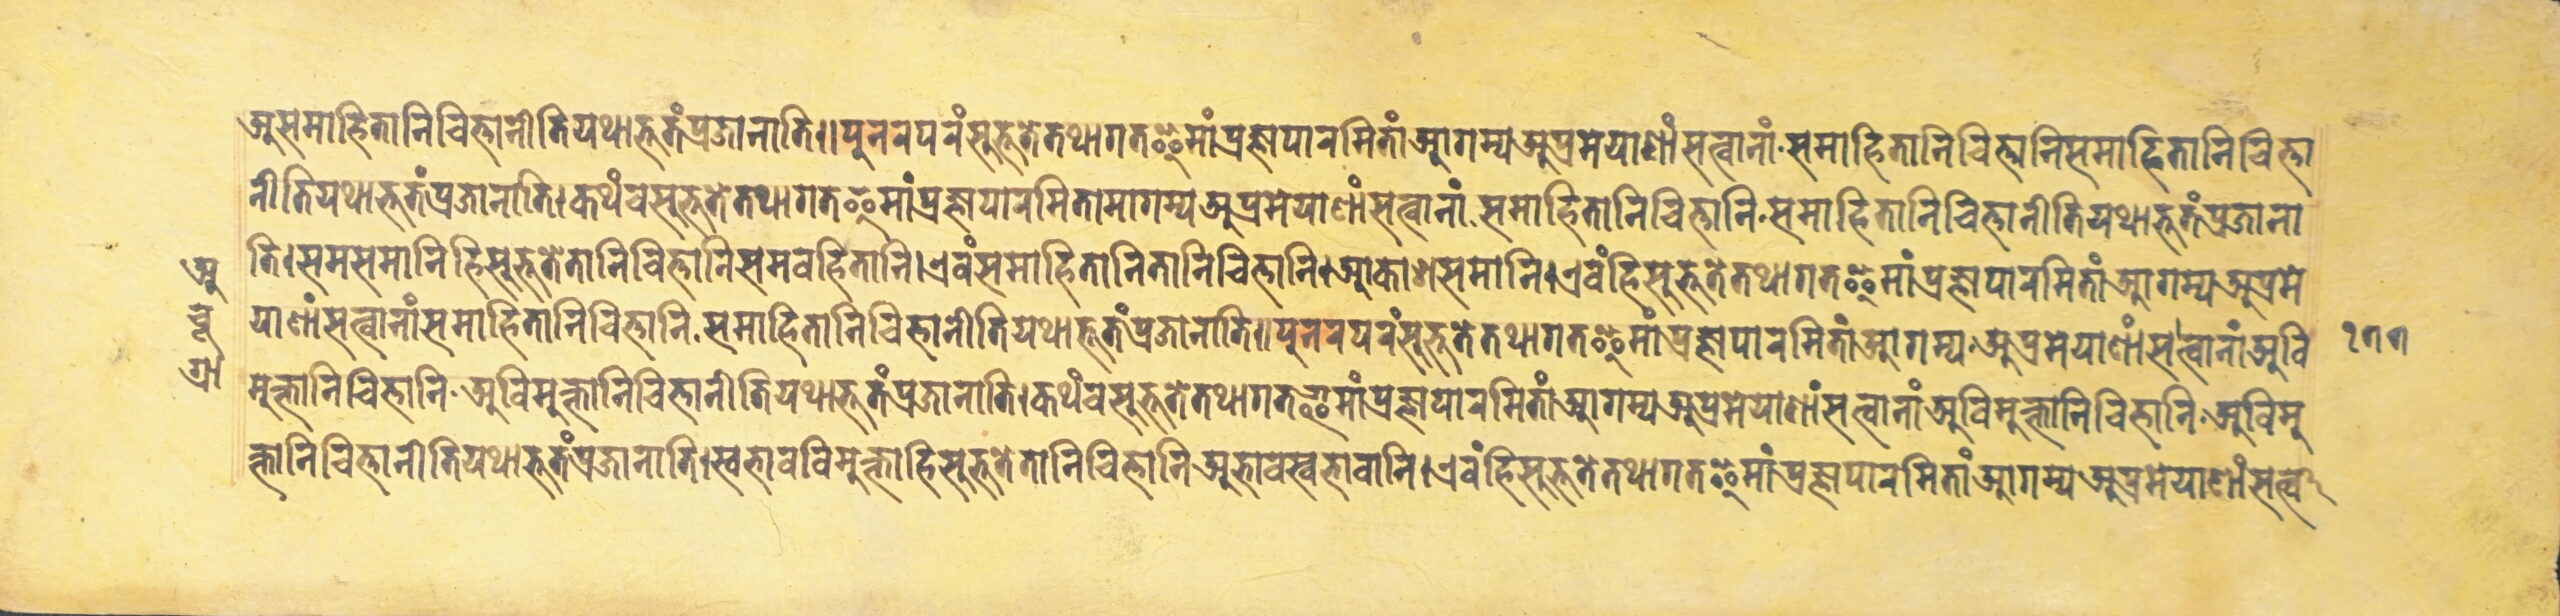 असमाहितानिचित्तानीतियथाभूतंप्रजानाति॥पुनरपरंसुभूतेतथागतइमांप्रज्ञापारमितांआगम्यअप्रमेयाणांसत्वानां·समाहितानिचित्तानिसमाहितानिचित्ता
नीतियथाभूतंप्रजानाति।कथंचसुभूतेतथागतइमांप्रज्ञापारमितामागम्यअप्रमेयाणांसत्वानां·समाहितानिचित्तानि·समाहितानिचित्तानीतियथाभूतंप्रजाना
ति।समसमानिहिसुभूतेतानिचित्तानिसमवहितानि।एवंसमाहितानितानिचित्तानि।आकाशसमानि।एवंहिसुभूतेतथागतइमांप्रज्ञापारमितांआगम्यअप्रमे
याणांसत्वानांसमाहितानिचित्तानि·समाहितानिचित्तानीतियथाभूतंप्रजानाति॥पुनरपरंसुभूतेतथागतइमांप्रज्ञापारमितांआगम्य·अप्रमेयाणांसत्वानांअवि
मुक्तानिचित्तानि·अविमुक्तानिचित्तानीतियथाभूतंप्रजानाति।कथंचसुभूतेतथागतइमांप्रज्ञापारमितांआगम्यअप्रमेयाणांसत्वानांअविमुक्तानिचित्तानि·अविमु
क्तानिचित्तानीतियथाभूतंप्रजानाति।स्वभावविमुक्ताहिसुभूतेतानिचित्तानिअभावस्वभावानि।एवंहिसुभूतेतथागतइमांप्रज्ञापारमितांआगम्यअप्रमेयाणांसत्व
१७७